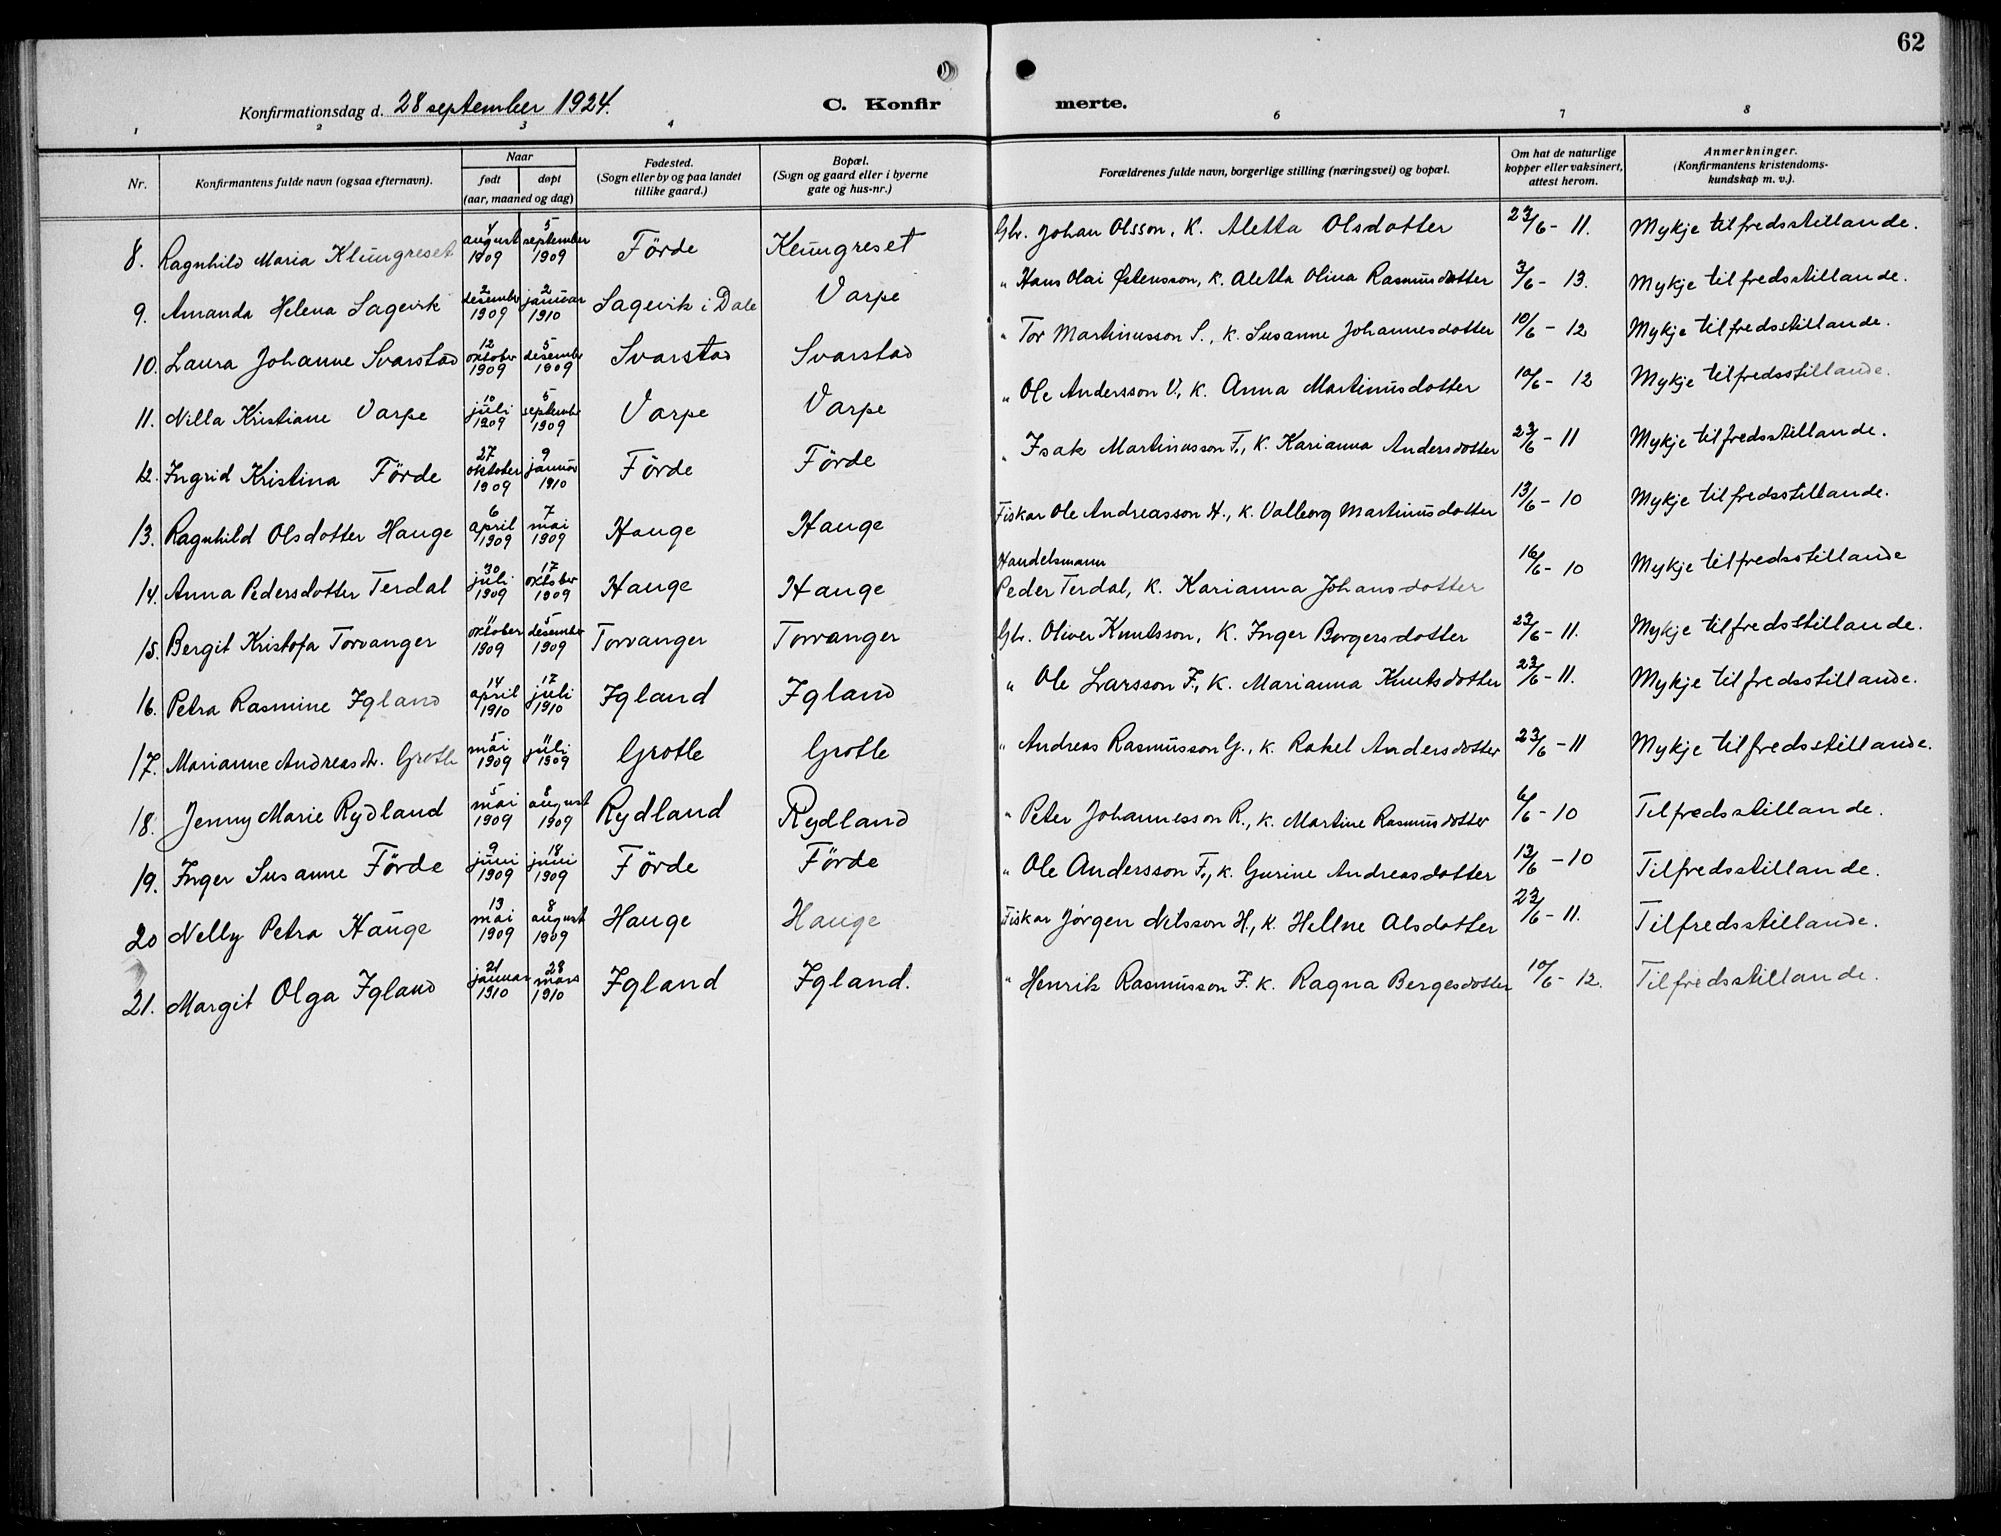 62
Konfirmationsdag d. 28 september 1924. C. Konfirmerte.
1 2 3 4 6 7 8
Nr. Konfirmantens fulde navn (ogsaa efternavn). Naar født døpt (aar, maaned og dag) Fødested. (Sogn eller by og paa landet tillike gaard.) Bopæl. (Sogn og gaard eller i byerne gate og hus-nr.) Forældrenes fulde navn, borgerlige stilling (næringsvei) og bopæl. Om hat de naturlige kopper eller vaksinert, attest herom. Anmerkninger. (Konfirmantens kristendoms-kundskap m. v.).
8. Ragnhild Maria Klungreset 4 august 1909 5 september 1909 Förde Klungreset Gbr. Johan Olsson, K. Aletta Olsdotter 23/6 - 11. Mykje tilfredsstillande.
9. Amanda Helena Sagevik 2 desember 1909 2 januar 1910 Sagevik i Dale Varpe " Hans Olai Østensson, K. Aletta Olina Rasmusdotter 3/6 - 13. Mykje tilfredsstillande.
10. Laura Johanne Svarstad 12 oktober 1909 5 desembr 1909 Svarstad Svarstad " Tor Martinusson S., K. Susanne Johannesdotter 10/6 - 12 Mykje tilfredsstillande.
11. Nilla Kristiane Varpe 10 juli 1909 5 septembr 1909 Varpe Varpe " Ole Andersson V., K. Anna Martinusdotter 10/6 - 12 Mykje tilfredsstillande.
12. Ingrid Kristina Förde 27 oktober 1909 9 januar 1910 Förde Förde " Isak Martinusson F., K. Karianna Andersdotter 23/6 - 11 Mykje tilfredsstillande.
13. Ragnhild Olsdotter Hauge 6 april 1909 7 mai 1909 Hauge Hauge Fiskar Ole Andreasson H., K. Valborg Martinusdotter 13/6 - 10 Mykje tilfredsstillande.
14. Anna Pedersdotter Terdal 30 juli 1909 17 oktober 1909 Hauge Hauge Handelsmann Peder Terdal, K. Karianna Johansdotter 16/6 - 10 Mykje tilfredsstillande
15. Bergit Kristofa Torvanger 11 oktober 1909 5 desember 1909 Torvanger Torvanger Gbr. Oliver Knutsson, K. Inger Borgersdotter 23/6 - 11. Mykje tilfredsstillande.
16. Petra Rasmine Igland 14 april 1910 17 juli 1910 Igland Igland " Ole Larsson I., K. Marianna Knutsdotter 23/6 - 11. Mykje tilfredsstillande.
17. Marianne Andreasdt. Grotle 5 mai 1909 11 juli 1909 Grotle Grotle " Andreas Rasmusson G., K. Rakel Andersdotter 23/6 - 11 Mykje tilfredsstillande.
18. Jenny Marie Rydland 5 mai 1909 8 august 1909 Rydland Rydland " Peter Johannesson R., K. Martine Rasmusdotter 6/6 - 10 Tilfredsstillande.
19. Inger Susanne Förde 9 juni 1909 18 juni 1909 Förde Förde " Ole Andersson F., K. Gurine Andreasdotter 13/6 - 10 Tilfredsstillande.
20 Nelly Petra Hauge 13 mai 1909 8 august 1909 Hauge Hauge Fiskar Jørgen Nilsson H., K. Hellne Alsdotter 23/6 - 11. Tilfredsstillande.
21. Margit Olga Igland 21 januar 1910 28 mars 1910 Igland Igland. " Henrik Rasmusson I. K. Ragna Bergesdotter 10/6 - 12. Tilfredsstillande.